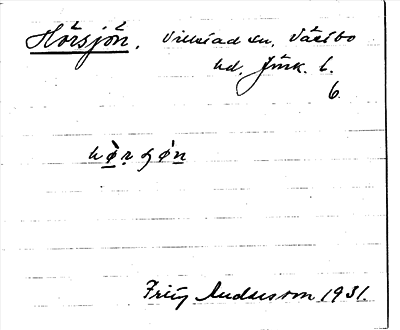 Hörsjön. Villstad sn, Västbo
hd, Jönk. l.
6.
Fritz Andersson 1931.